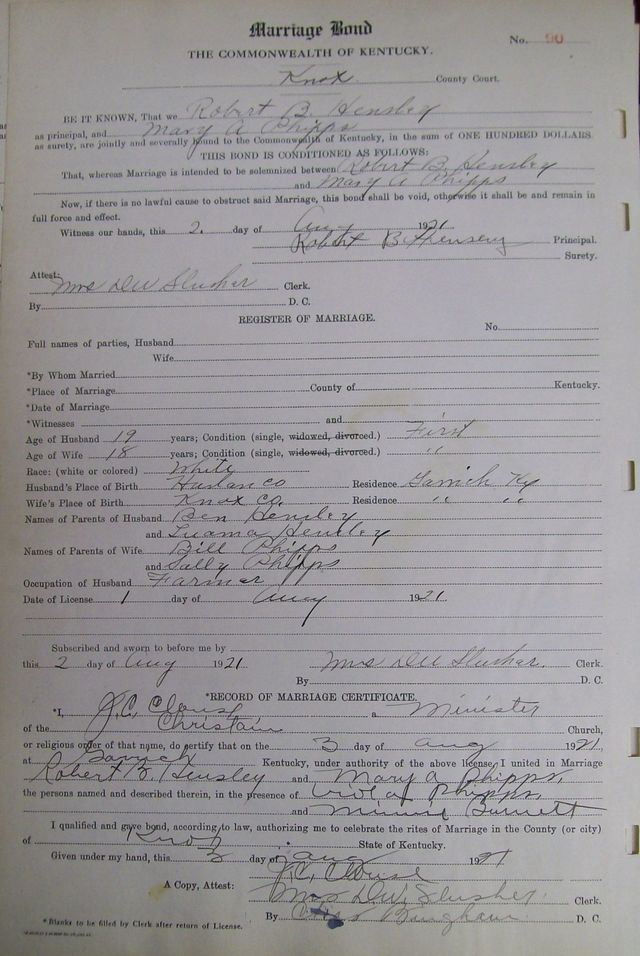 Marriage Bond
No. 90
THE COMMONWEALTH OF KENTUCKY.
Knox County Court.
BE IT KNOWN, That we Robert B. Hensley
as principal, and Mary A Phipps
as surety, are jointly and severally bound to the Commonwealth of Kentucky, in the sum of ONE HUNDRED DOLLARS
THIS BOND IS CONDITIONED AS FOLLOWS:
That, whereas Marriage is intended to be solemnized between Robert B. Hensley
and Mary A Phipps
Now, if there is no lawful cause to obstruct said Marriage, this bond shall be void, otherwise it shall be and remain in
full force and effect.
Witness our hands, this 2. day of Aug 1921
Robert B. Hensley Principal.
Surety.
Attest:
Mrs DW Slusher Clerk.
By D. C.
REGISTER OF MARRIAGE.
No.
Full names of parties, Husband
Wife
*By Whom Married
*Place of Marriage County of Kentucky.
*Date of Marriage
*Witnesses and
Age of Husband 19 years; Condition (single, widowed, divorced.) First
Age of Wife 18 years; Condition (single, widowed, divorced.) " "
Race: (white or colored) White
Husband's Place of Birth Harlan Co Residence Ky
Wife's Place of Birth Knox Co. Residence " " " "
Names of Parents of Husband Ben Hensley
and Luama Hensley
Names of Parents of Wife Bill Phipps
and Sally Phipps
Occupation of Husband Farmer
Date of License 1 day of Aug 1921
Subscribed and sworn to before me by
this 2 day of Aug 1921 Mrs DW Slusher. Clerk.
By D. C.
*RECORD OF MARRIAGE CERTIFICATE.
*I, J.C. Clouse a Minister
of the Christain Church,
or religious order of that name, do certify that on the 3 day of Aug 1921,
at Kentucky, under authority of the above license, I united in Marriage
Robert B. Hensley and Mary A Phipps,
the persons named and described therein, in the presence of Phipps,
and Minnie Burnett
I qualified and gave bond, according to law, authorizing me to celebrate the rites of Marriage in the County (or city)
of Knox State of Kentucky.
Given under my hand, this 3 day of Aug 1921
J.C. Clouse
A Copy, Attest: Mrs DW, Slusher. Clerk.
By Bingham D. C.
*Blanks to be filled by Clerk after return of License.